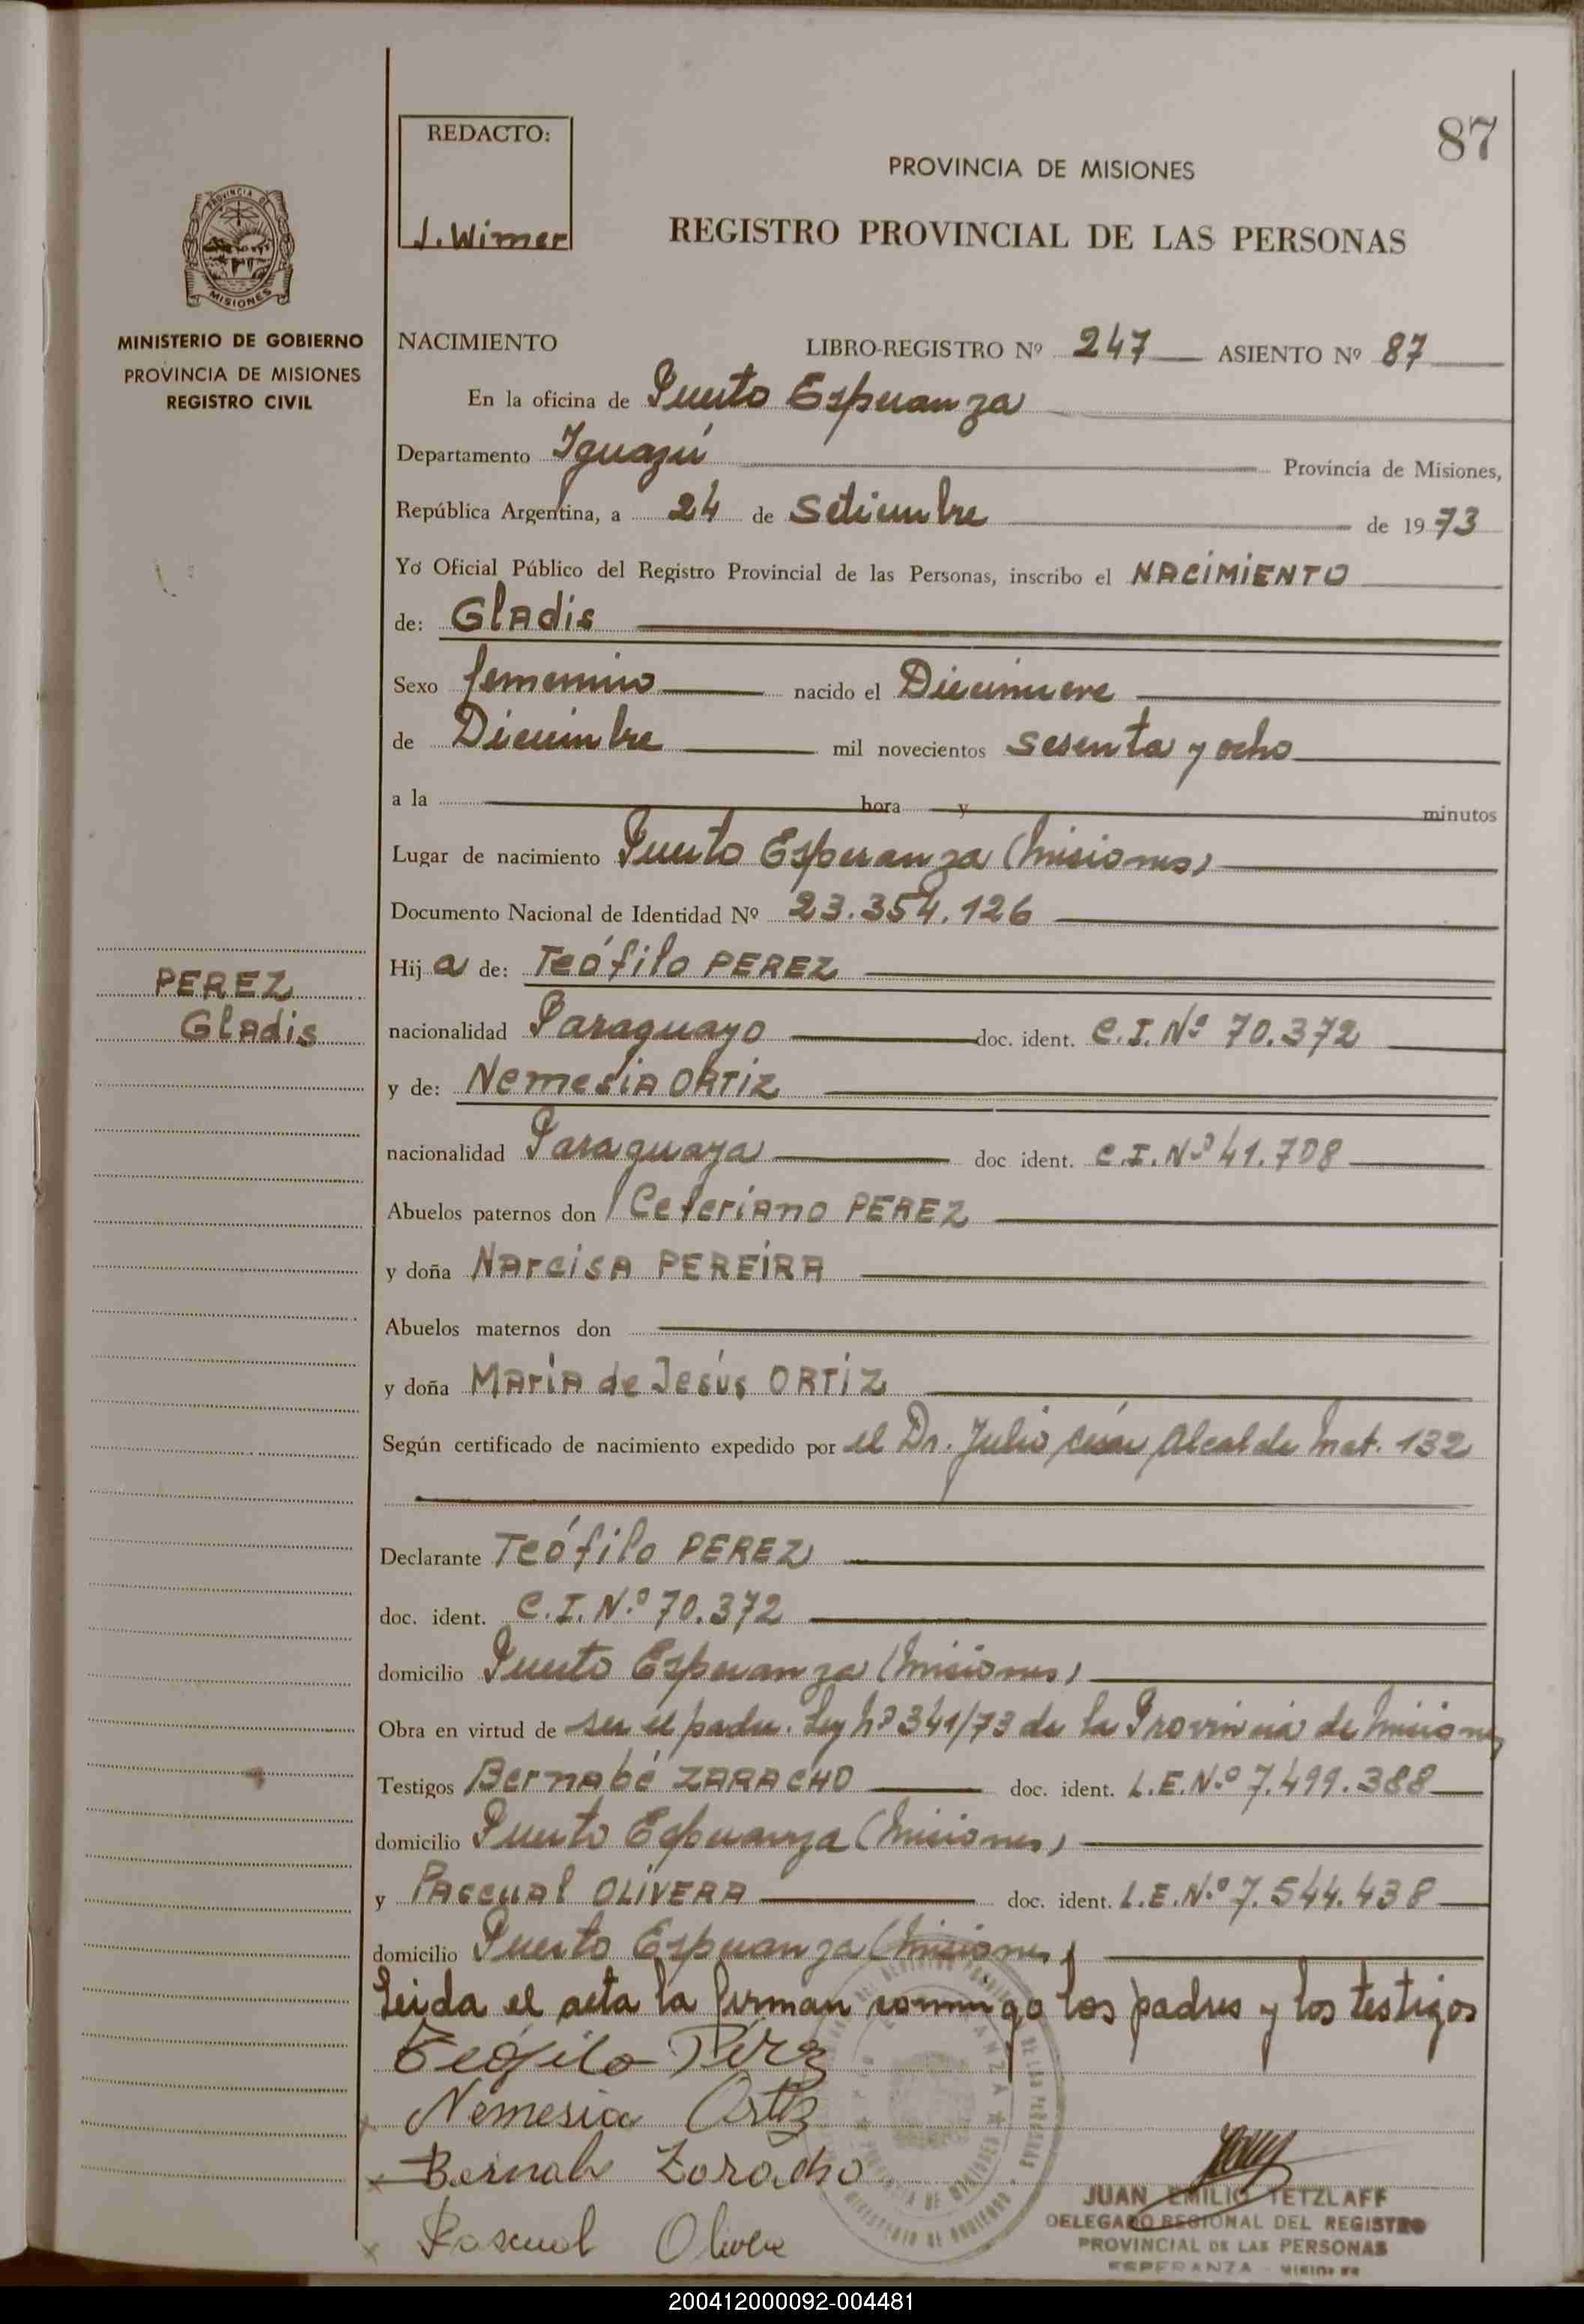 REDACTO:
J. Wimer
87
PROVINCIA DE MISIONES
REGISTRO PROVINCIAL DE LAS PERSONAS
PROVINCIA DE
MISIONES
MINISTERIO DE GOBIERNO
PROVINCIA DE MISIONES
REGISTRO CIVIL
NACIMIENTO LIBRO-REGISTRO Nº 247 ASIENTO Nº 87
En la oficina de Puerto Esperanza
Departamento Iguazú Provincia de Misiones,
República Argentina, a 24 de Setiembre de 1973
Yo Oficial Público del Registro Provincial de las Personas, inscribo el NACIMIENTO
de: Gladis
Sexo femenino nacido el Diecinueve
de Diciembre mil novecientos sesenta y ocho
a la hora y minutos
Lugar de nacimiento Puerto Esperanza (Misiones)
Documento Nacional de Identidad Nº 23.354.126
Hija de: Teófilo PEREZ
PEREZ
Gladis
nacionalidad Paraguayo doc. ident. C.I. Nº 70.372
y de: Nemesia ORTIZ
nacionalidad Paraguaya doc ident. C.I. Nº 41.708
Abuelos paternos don Ceferiano PEREZ
y doña Narcisa PEREIRA
Abuelos maternos don
y doña María de Jesús ORTIZ
Según certificado de nacimiento expedido por el Dr. Julio César Alcalde Mat. 132
Declarante Teófilo PEREZ
doc. ident. C.I. N.º 70.372
domicilio Puerto Esperanza (Misiones)
Obra en virtud de ser el padre. Ley Nº 341/73 de la Provincia de Misiones
Testigos Bernabé ZARACHO doc. ident. L.E. N.º 7.499.388
domicilio Puerto Esperanza (Misiones)
y Pascual OLIVERA doc. ident. L.E. N.º 7.544.438
domicilio Puerto Esperanza (Misiones)
Leida el acta la firman conmigo los padres y los testigos
Teófilo Pérez
Nemesia Ortiz
Bernabe Zoracho
Pascual Olivera
JUAN EMILIO TETZLAFF
DELEGADO REGIONAL DEL REGISTRO
PROVINCIAL DE LAS PERSONAS
ESPERANZA - MISIONES
200412000092-004481